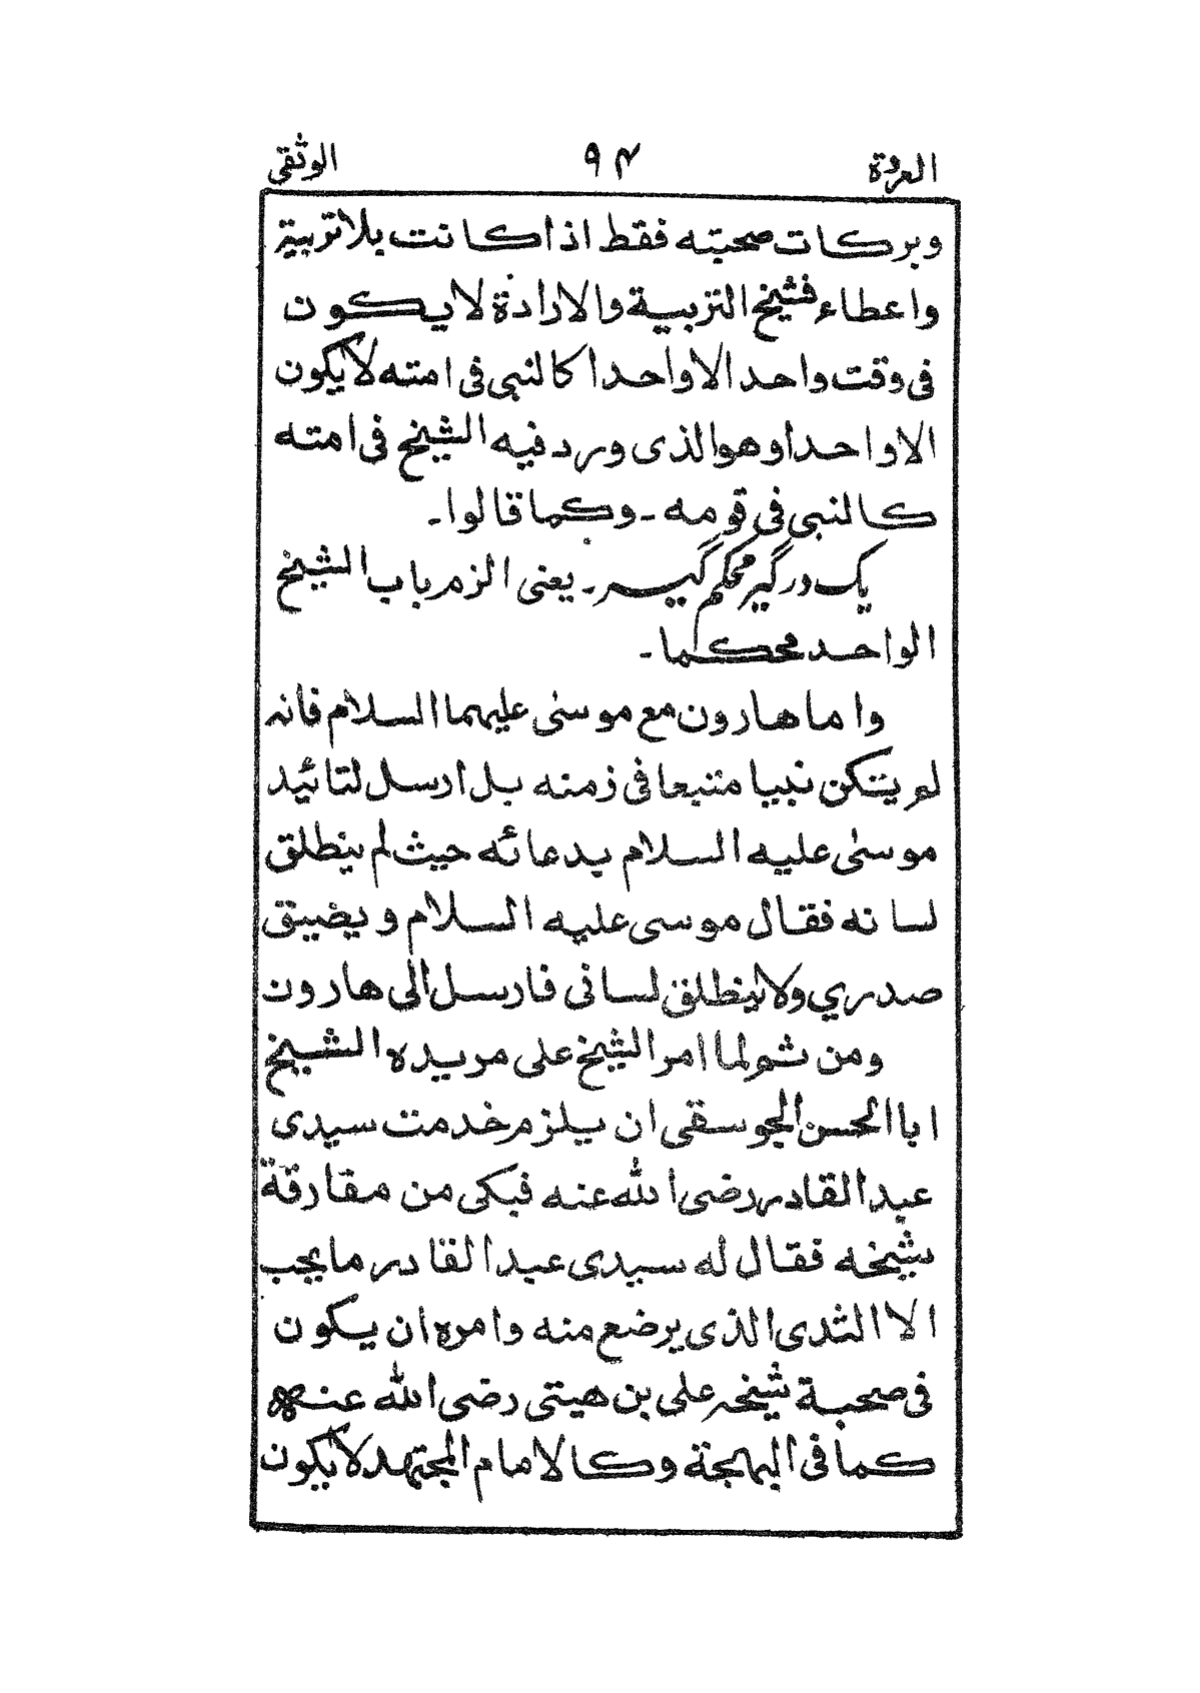 العروة ٩٤ الوثقى
وبركات صحبته فقط اذا كانت بلا تربية
واعطاء فشيخ التربية والارادة لا يكون
فى وقت واحد الا واحدا كالنبى فى امته لا يكون
الا واحدا وهو الذى ورد فيه الشيخ فى امته
كالنبى فى قومه ـ وكما قالوا ـ
يک در گير محکم گير ـ يعنى الزم باب الشيخ
الواحد محكما ـ
واما هارون مع موسىٰ عليهما السلام فانه
لم يتكن نبيا متبعا فى زمنه بل ارسل لتائيد
موسىٰ عليه السلام بدعائه حيث لم ينطلق
لسانه فقال موسى عليه السلام ويضيق
صدري ولا ينطلق لسانى فارسل الى هارون
ومن ثم لما امر الشيخ على مريده الشيخ
ابا الحسن الجوسقى ان يلزم خدمت سيدى
عبد القادر رضى الله عنه فبكى من مفارقة
شيخه فقال له سيدى عبد القادر ما يحب
الا الثدى الذى يرضع منه وامره ان يكون
فى صحبة شيخه على بن هيتى رضى الله عنهم
كما فى البهجة وكالامام المجتهد لا يكون